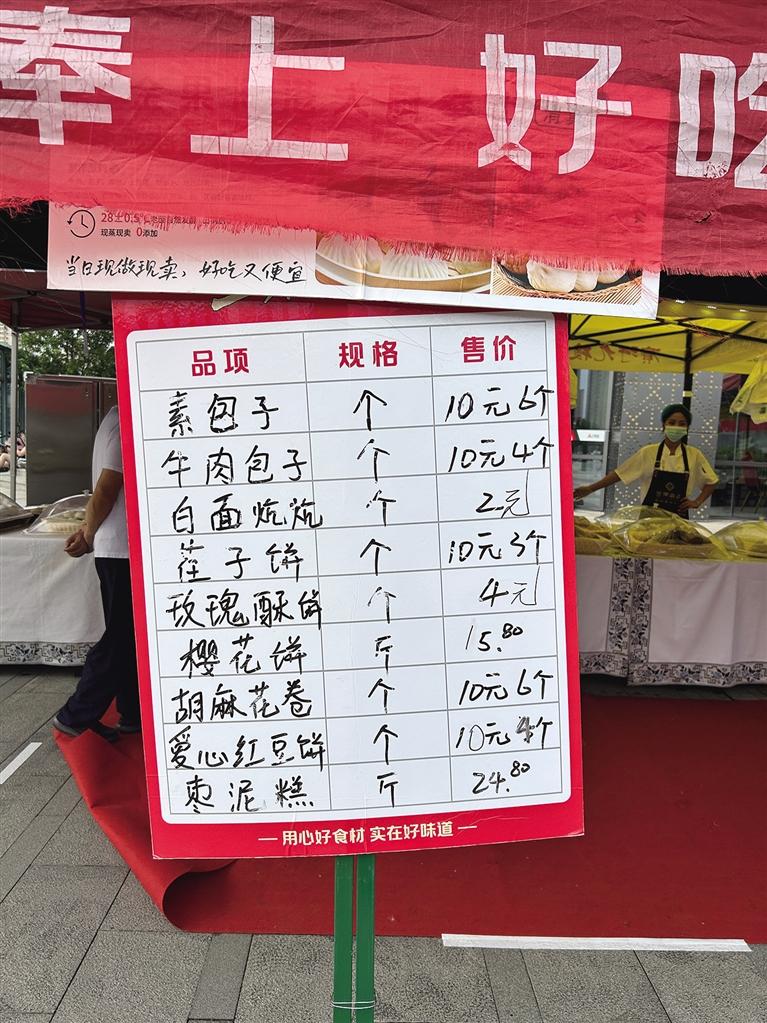 奉上 好吃
28±0.5℃
现蒸现卖 0添加
当日现做现卖，好吃又便宜
品项 规格 售价
素包子 个 10元6个
牛肉包子 个 10元4个
白面炕炕 个 2元
荏子饼 个 10元3个
玫瑰酥饼 个 4元
樱花饼 斤 15.80
胡麻花卷 个 10元6个
爱心红豆饼 个 10元4个
枣泥糕 斤 24.80
用心好食材 实在好味道